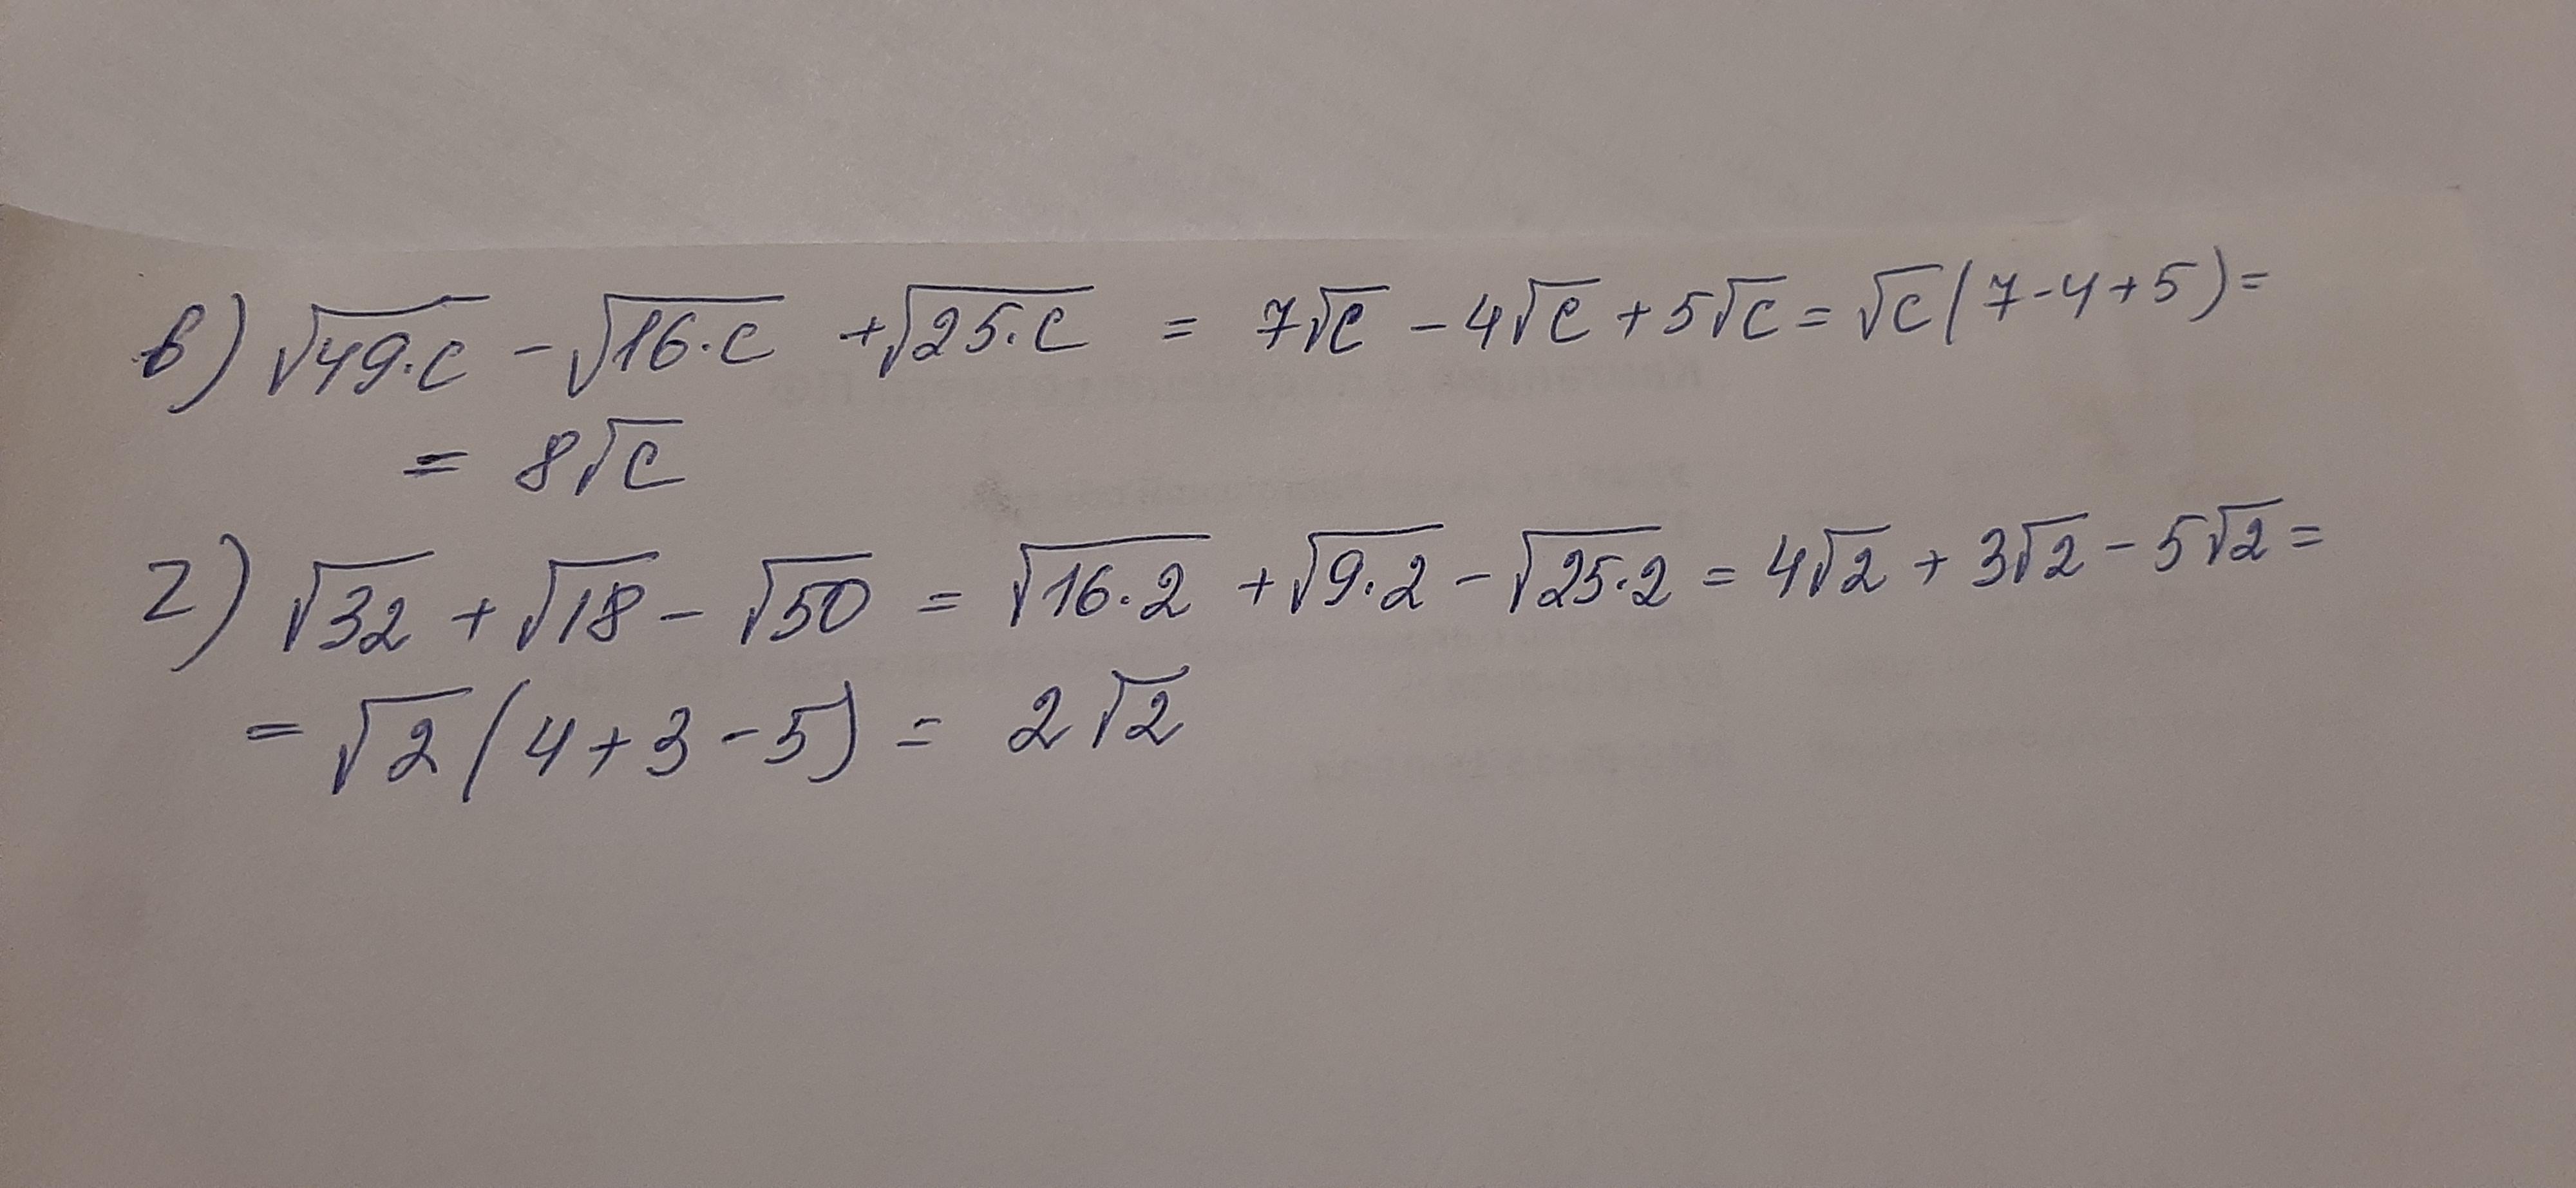 в) √49·c - √16·c + √25·c = 7√c - 4√c + 5√c = √c (7-4+5) =
= 8√c
г) √32 + √18 - √50 = √16·2 + √9·2 - √25·2 = 4√2 + 3√2 - 5√2 =
= √2 (4+3-5) = 2√2